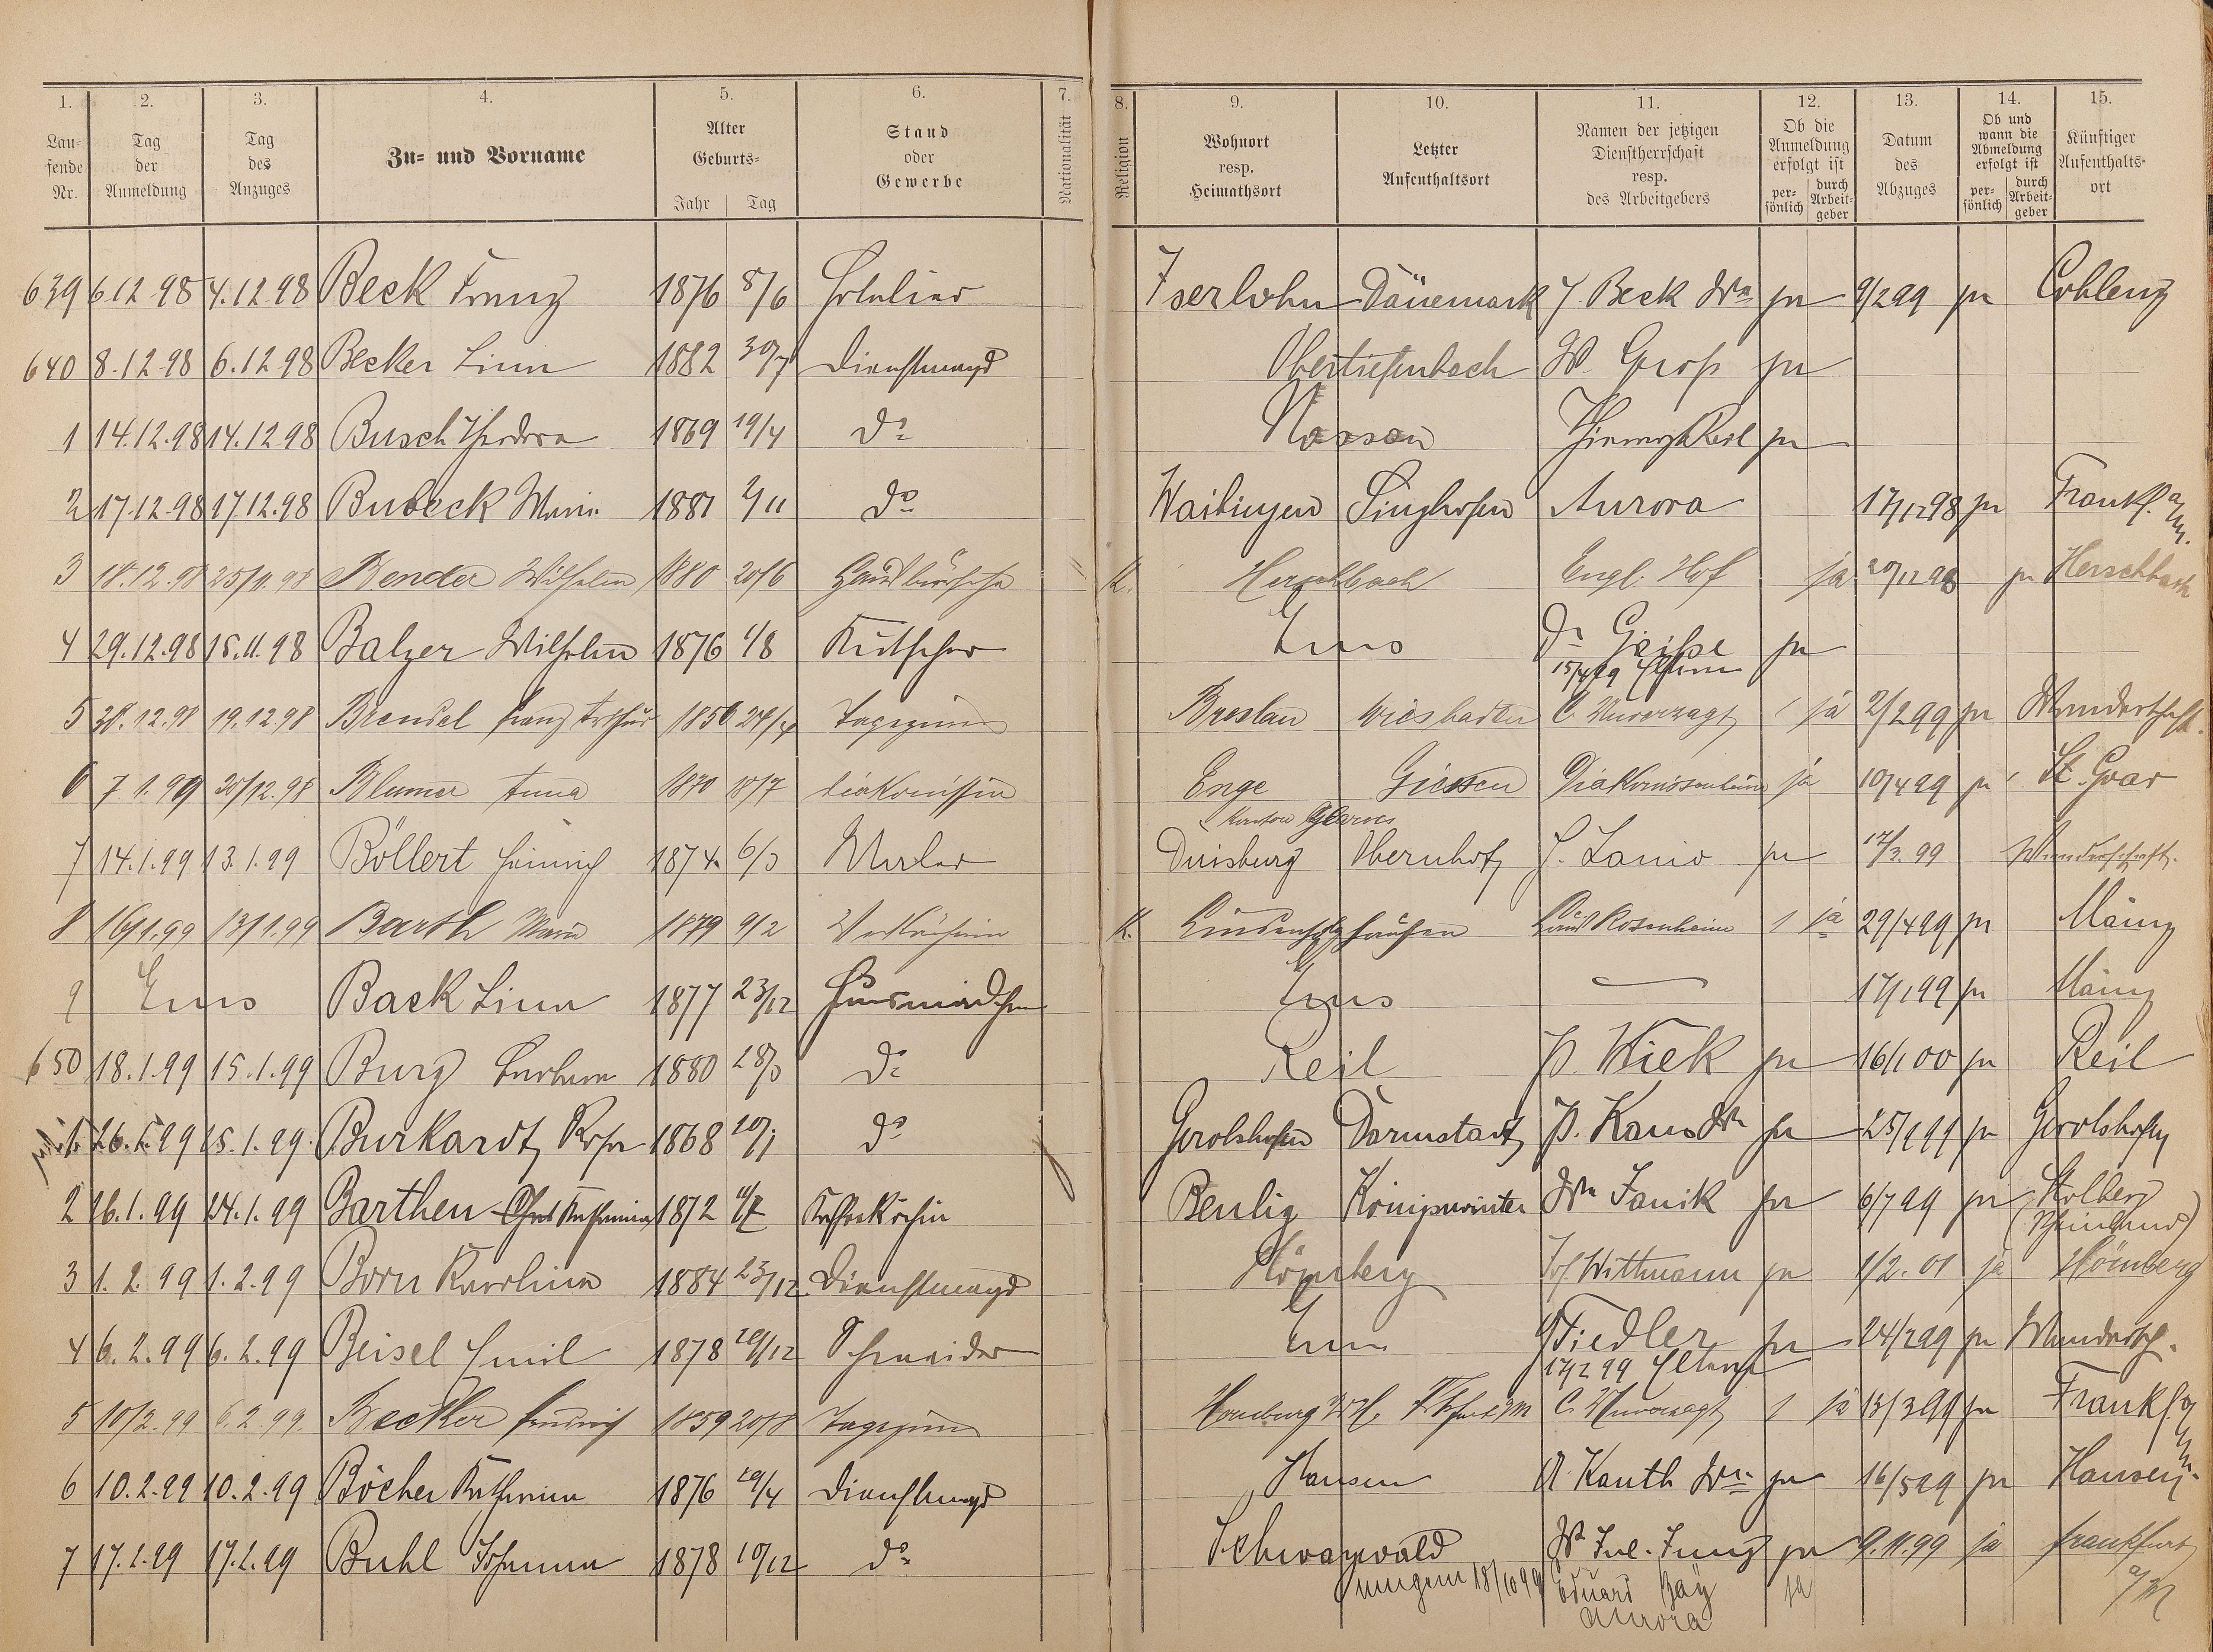 1. 2. 3. 4. 5. 6. 7. 8. 9. 10. 11. 12. 13. 14. 15.
Lau-fende Nr. Tag der Anmeldung Tag des Anzuges Zu- und Vorname Alter Geburts- Jahr Tag Stand oder Gewerbe Nationalität Religion Wohnort resp. Heimathsort Letzter Aufenthaltsort Namen der jetzigen Dienstherrschaft resp. des Arbeitgebers Ob die Anmeldung erfolgt ist per-sönlich durch Arbeit-geber Datum des Abzuges Ob und wann die Abmeldung erfolgt ist per-sönlich durch Arbeit-geber Künftiger Aufenthalts-ort
639 6.12.98 4.12.98 Beck Franz 1876 8/6 Hotelier Iserlohn Dänemark J. Beck Wwe ja 9/2 99 ja Coblenz
640 8.12.98 6.12.98 Becker Lina 1882 30/7 Dienstmagd Obertiefenbach W. Groß ja
1 14.12.98 14.12.98 Busch Theodora 1869 19/4 do Nassau ja
2 17.12.98 17.12.98 Bubeck Marie 1881 2/11 do Waiblingen Singhofen Aurora 17/12 98 ja Frankf. a/M.
3 18.12.98 25/11.98 Bender Wilhelm 1880 20/6 Hausbursche K. Herschbach Engl. Hof ja 20/12 98 ja Herschbach
4 29.12.98 15.11.98 Balzer Wilhelm 1876 1/8 Kutscher Ems Dr ja
15/4 99
5 30.12.98 19.12.98 Brendel Franz Arthur 1856 Breslau Wiesbaden C. Unverzagt 1 ja 2/2 99 ja Wanderschaft.
6 7.1.99 30/12.98 Blumer Anna 1870 18/7 Diakonissin Enge Giessen Diakonissenheim ja 10/4 99 ja St. Goar
Kanton Glarus
7 14.1.99 13.1.99 Böllert Heinrich 1874 6/3 Maler Duisburg Obernhof J. Lanio ja 17/3. 99 Wanderschaft.
8 16/1.99 13/1.99 Barth Maria 1879 9/2 Verkäuferin K. Lindenholzhausen Haus Rosenheim 1 ja 29/4 99 ja Mainz
9 Ems Back Lina 1877 23/12 Hausmädchen Ems — 17/1 99 ja Mainz
650 18.1.99 15.1.99 Burg Barbara 1880 28/3 do Reil P. Kiek ja 16/1 00 ja Reil
1 26.1.99 25.1.99 Burkardt Rosa 1868 do Gerolshofen Darmstadt P. Kaus Wwe ja 25/1 99 ja Gerolshofen
2 26.1.99 24.1.99 Barthen Katharina 1872 Kaffeeköchin Benlig Königswinter Wwe Janik ja 6/7 99 ja Stolberg
(Rheinland)
3 1.2.99 1.2.99 Born Karolina 1884 23/12 Dienstmagd Hömberg Jos. Wittmann ja 1/2. 01 ja Hömberg
4 6.2.99 6.2.99 Beisel Emil 1878 29/12 Schneider Ems Fiedler ja 24/2 99 ja Wandersch.
17/2 99 Eltern
5 10/2.99 6.2.99 Becker Heinrich 1859 20/8 Homburg v.d.H. C. Unverzagt 1 ja 13/3 99 ja Frankf. a/M.
6 10.2.99 10.2.99 Böcher Katharina 1876 29/4 Dienstmagd Hausen A. Kauth Wwe ja 16/5 99 ja Hausen
7 17.2.99 17.2.99 Buhl Johanna 1878 10/12 do Schwarzwald W. Jul. Jung ja 9.11.99 ja Frankfurt a/M
18/10 99 Eduard Bäy ja
Aurora